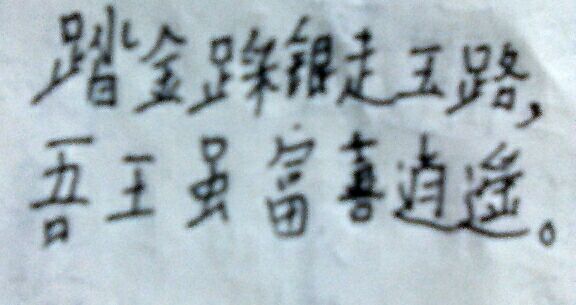 踏金踩銀走玉路,
吾王虽富喜逍遥。